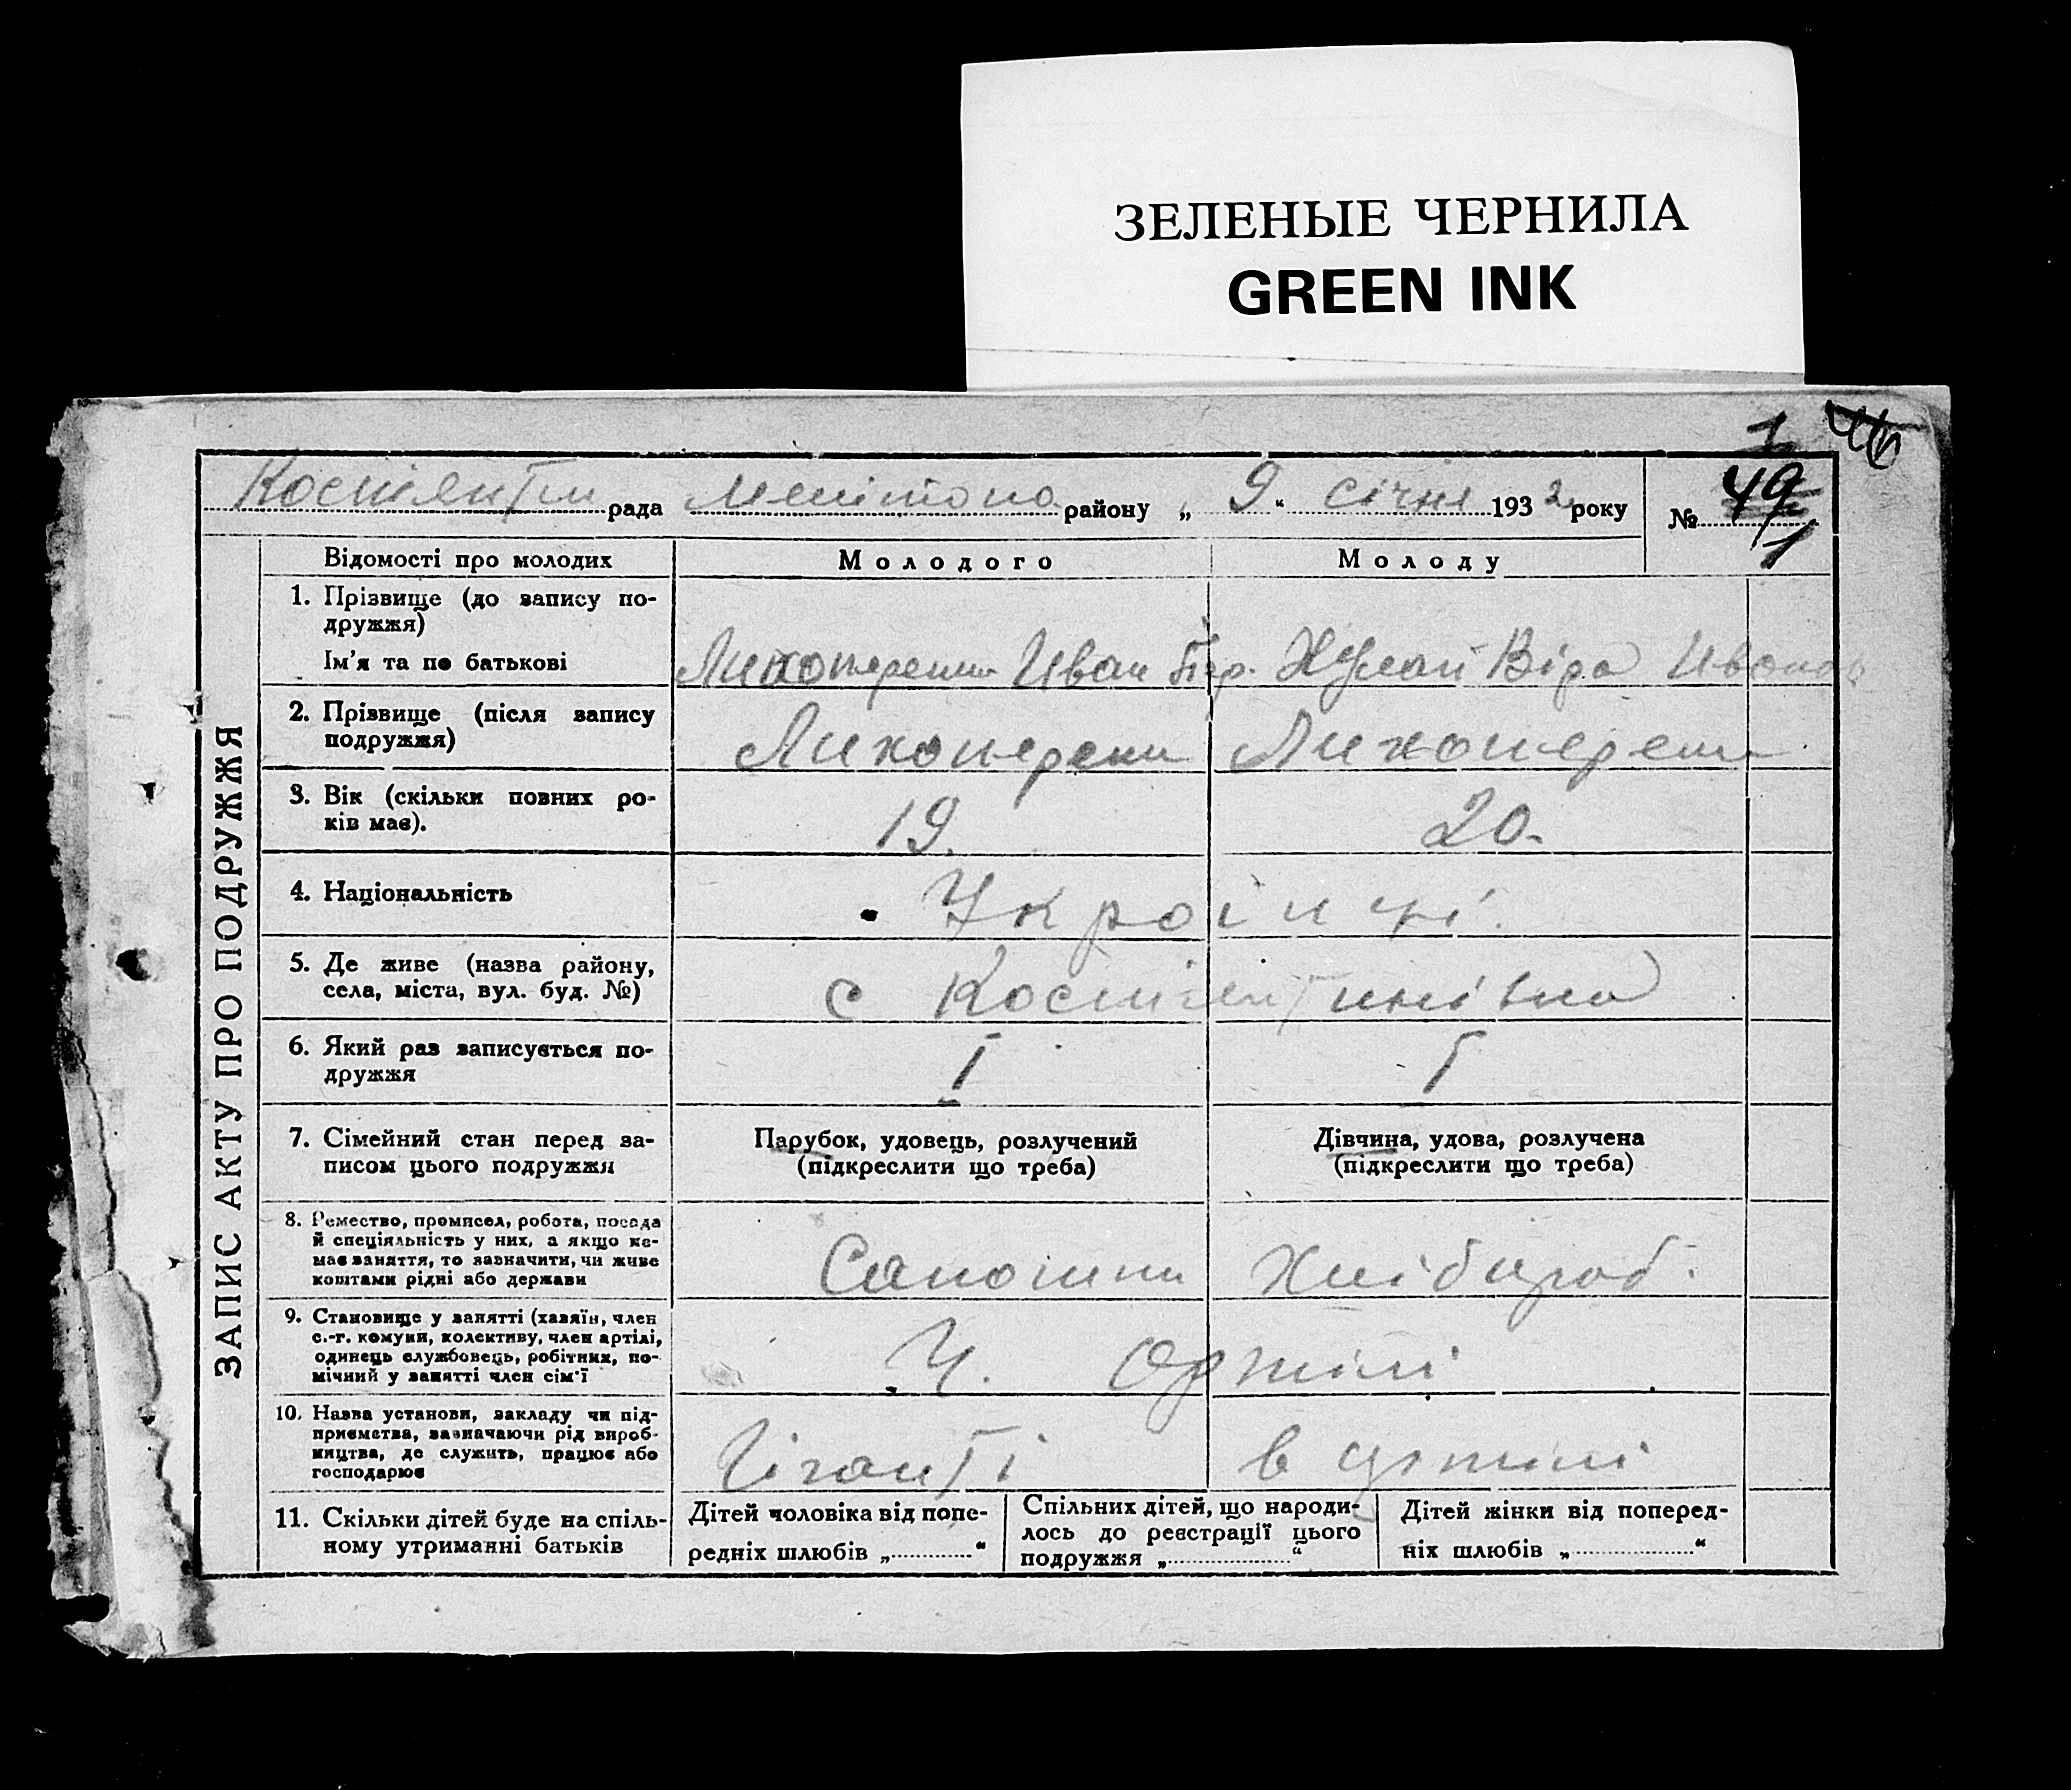 ЗЕЛЕНЫЕ ЧЕРНИЛА
GREEN INK
1
Костянтин рада Меліtопо району „ 9 “ січня 1932 року № 49
1
ЗАПИС АКТУ ПРО ПОДРУЖЖЯ
Відомості про молодих Молодого Молоду
1. Прізвище (до запису по-
дружжя)
Ім'я та по батькові Иван Віра Иванов
2. Прізвище (після запису
подружжя)
3. Вік (скільки повних ро-
ків має). 19. 20.
4. Національність Украінці.
5. Де живе (назва району,
села, міста, вул. буд. №) с Костянтинівка
6. Який раз записується по-
дружжя I I
7. Сімейний стан перед за-
писом цього подружжя
Парубок, удовець, розлучений
(підкреслити що треба)
Дівчина, удова, розлучена
(підкреслити що треба)
8. Ремество, промисел, робота, посада
й спеціяльність у них, а якщо не-
має заняття, то зазначити, чи живе
коштами рідні або держави Хлібороб.
9. Становище у занятті (хазяїн, член
с.-г. комуни, колективу, член артілі,
одинець службовець, робітник, по-
мічний у занятті член сім'ї Ч. Артілі
10. Назва установи, закладу чи під-
приємства, зазначаючи рід вироб-
ництва, де служить, працює або
господарює Гіганті в артілі
11. Скільки дітей буде на спіль-
ному утриманні батьків
Дітей чоловіка від попе-
редніх шлюбів „ “
Спільних дітей, що народи-
лось до реєстрації цього
подружжя „ “
Дітей жінки від поперед-
ніх шлюбів „ “